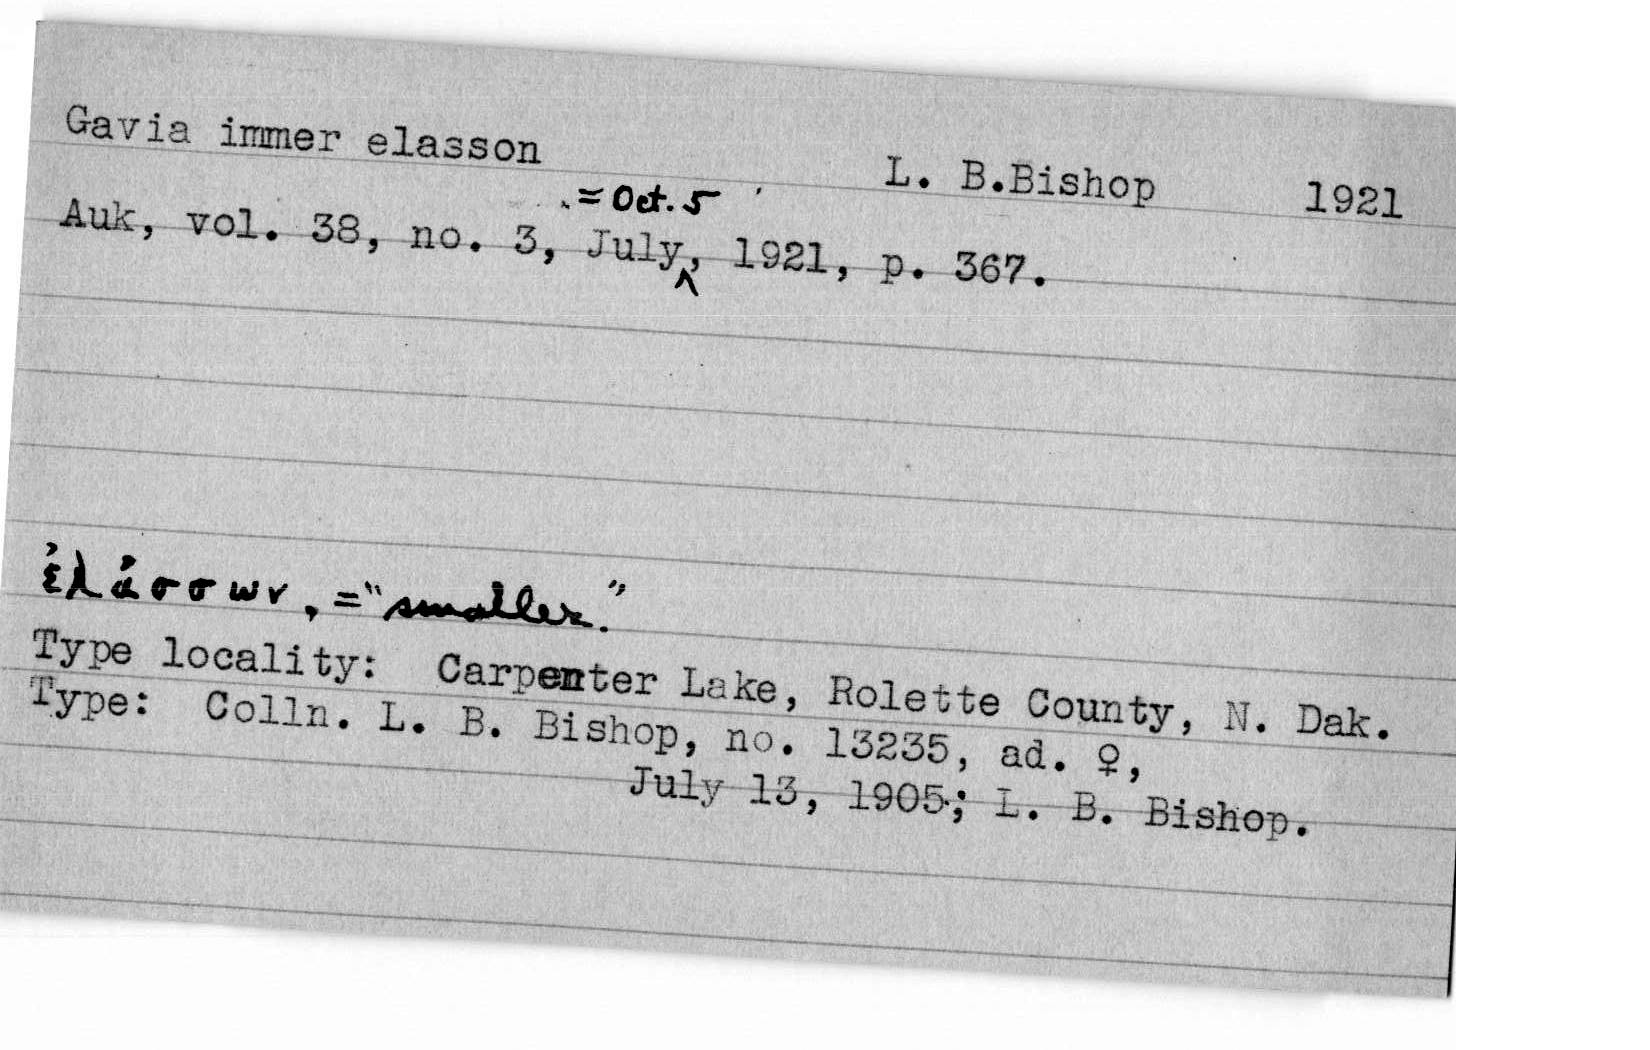 Gavia immer elasson L. B.Bishop 1921
= Oct. 5
Auk, vol. 38, no. 3, July, 1921, p. 367.
ἐλάσσων, = "smaller."
Type locality: Carpenter Lake, Rolette County, N. Dak.
Type: Colln. L. B. Bishop, no. 13235, ad. ♀,
July 13, 1905; L. B. Bishop.